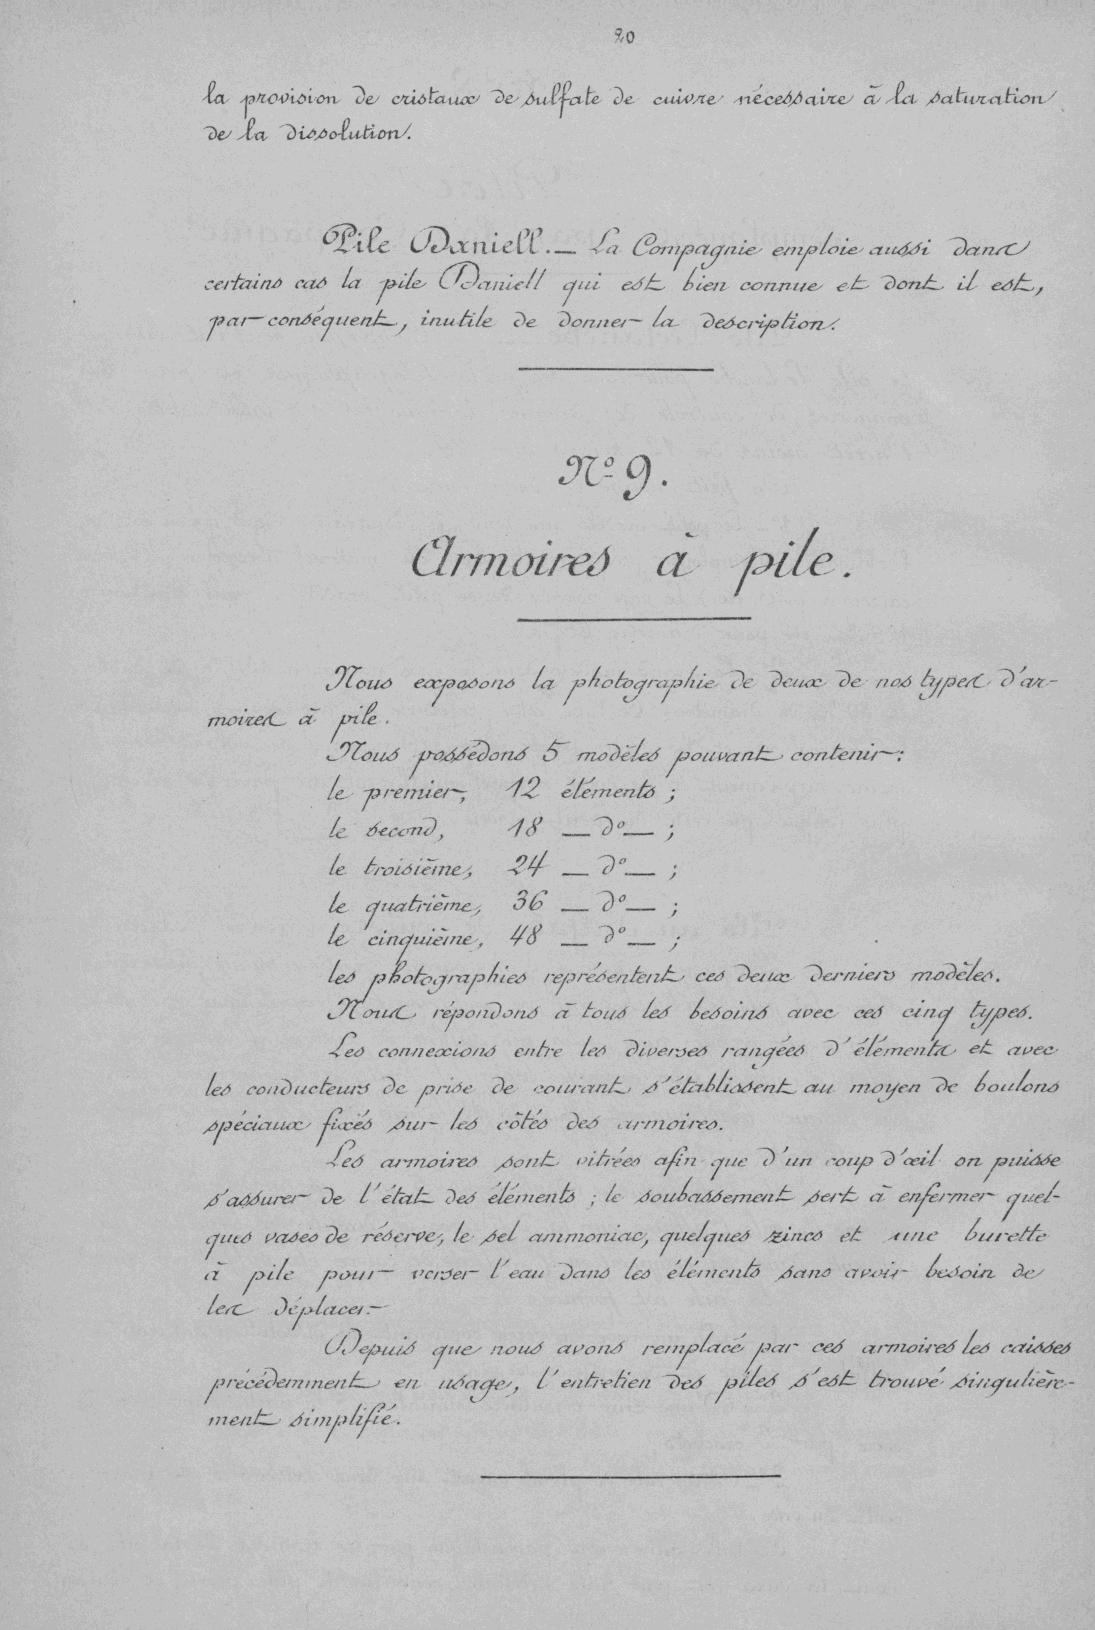 20
la provision de cristaux de sulfate de cuivre nécessaire à la saturation
de la dissolution.
Pile Daniell. — La Compagnie emploie aussi dans
certains cas la pile Daniell qui est bien connue et dont il est,
par conséquent, inutile de donner la description.
N° 9.
Armoires à pile.
Nous exposons la photographie de deux de nos types d'ar-
moires à pile.
Nous possédons 5 modèles pouvant contenir :
le premier, 12 éléments ;
le second, 18 — d° — ;
le troisième, 24 — d° — ;
le quatrième, 36 — d° — ;
le cinquième, 48 — d° — ;
les photographies représentent ces deux derniers modèles.
Nous répondons à tous les besoins avec ces cinq types.
Les connexions entre les diverses rangées d'éléments et avec
les conducteurs de prise de courant s'établissent au moyen de boulons
spéciaux fixés sur les côtés des armoires.
Les armoires sont vitrées afin que d'un coup d'œil on puisse
s'assurer de l'état des éléments ; le soubassement sert à enfermer quel-
ques vases de réserve, le sel ammoniac, quelques zincs et une burette
à pile pour verser l'eau dans les éléments sans avoir besoin de
les déplacer.
Depuis que nous avons remplacé par ces armoires les caisses
précédemment en usage, l'entretien des piles s'est trouvé singulière-
ment simplifié.